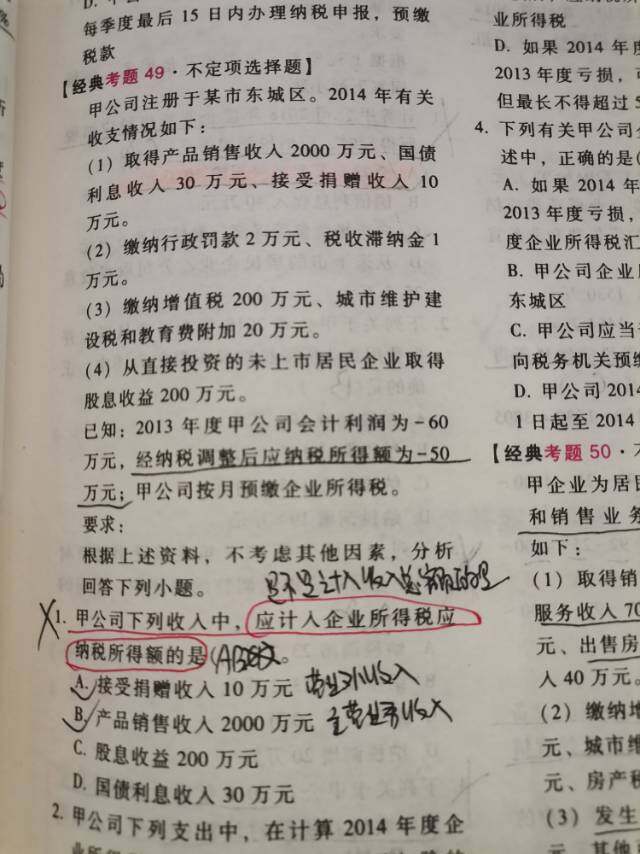 每季度最后 15 日内办理纳税申报，预缴
税款
【经典考题 49·不定项选择题】
甲公司注册于某市东城区。2014 年有关
收支情况如下：
（1）取得产品销售收入 2000 万元、国债
利息收入 30 万元、接受捐赠收入 10
万元。
（2）缴纳行政罚款 2 万元、税收滞纳金 1
万元。
（3）缴纳增值税 200 万元、城市维护建
设税和教育费附加 20 万元。
（4）从直接投资的未上市居民企业取得
股息收益 200 万元。
已知：2013 年度甲公司会计利润为－60
万元，经纳税调整后应纳税所得额为－50
万元；甲公司按月预缴企业所得税。
要求：
根据上述资料，不考虑其他因素，分析
回答下列小题。
是不是计入收入总额的是
1. 甲公司下列收入中，应计入企业所得税应
纳税所得额的是（AB）。
A. 接受捐赠收入 10 万元 营业外收入
B. 产品销售收入 2000 万元 主营业务收入
C. 股息收益 200 万元
D. 国债利息收入 30 万元
2. 甲公司下列支出中，在计算 2014 年度企
业所得税
D. 如果 2014 年度
2013 年度亏损，可
但最长不得超过 5
4. 下列有关甲公司企
述中，正确的是（
A. 如果 2014 年
2013 年度亏损，
度企业所得税汇
B. 甲公司企业
东城区
C. 甲公司应当
向税务机关预缴
D. 甲公司 2014
1 日起至 2014
【经典考题 50·不
甲企业为居民
和销售业务
如下：
（1）取得销
服务收入 70
元、出售房
入 40 万元。
（2）缴纳增
元、城市维
元、房产税
（3）发生
元、其他